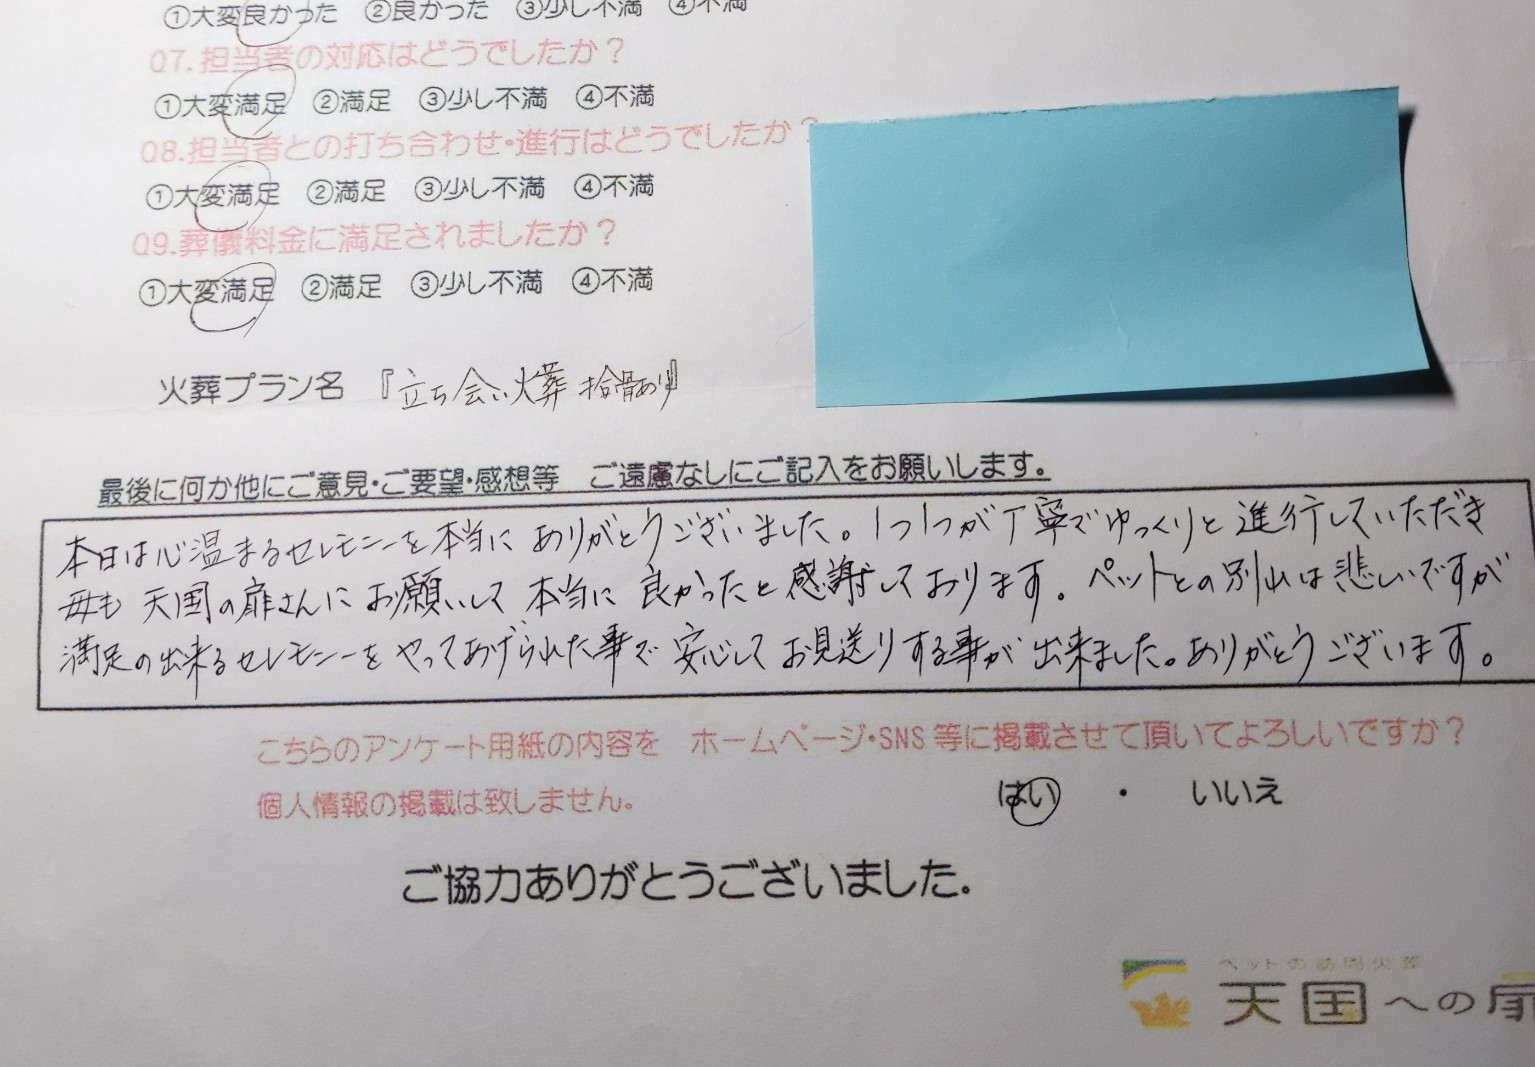 ①大変良かった ②良かった ③少し不満 ④不満
Q7.担当者の対応はどうでしたか？
①大変満足 ②満足 ③少し不満 ④不満
Q8.担当者との打ち合わせ・進行はどうでしたか？
①大変満足 ②満足 ③少し不満 ④不満
Q9.葬儀料金に満足されましたか？
①大変満足 ②満足 ③少し不満 ④不満
火葬プラン名 『立ち会い火葬 拾骨あり』
最後に何か他にご意見・ご要望・感想等 ご遠慮なしにご記入をお願いします。
本日は心温まるセレモニーを本当にありがとうございました。1つ1つが丁寧でゆっくりと進行していただき
母も天国の扉さんにお願いして本当に良かったと感謝しております。ペットとの別れは悲しいですが
満足の出来るセレモニーをやってあげられた事で安心してお見送りする事が出来ました。ありがとうございます。
こちらのアンケート用紙の内容を ホームページ・SNS等に掲載させて頂いてよろしいですか？
個人情報の掲載は致しません。 はい ・ いいえ
ご協力ありがとうございました。
ペットの訪問火葬
天国への扉